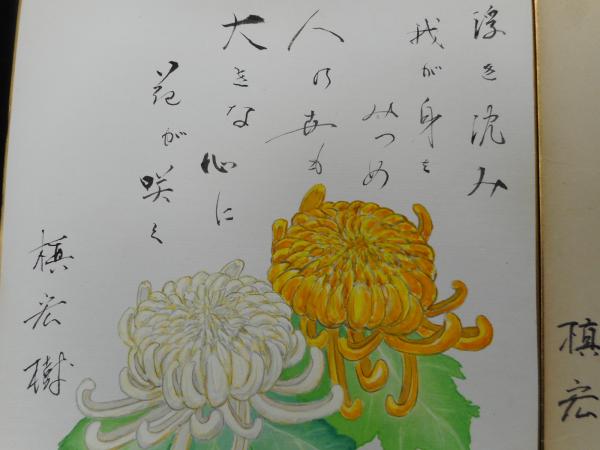 浮き沈み
我が身を
みつめ
人の世も
大きな心に
花が咲く
槙宏樹
槙宏